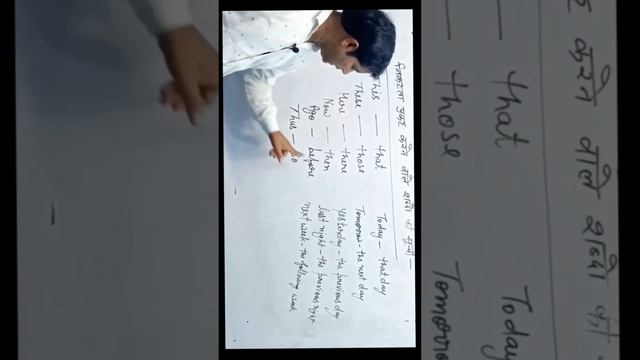 निकटता प्रकट करने वाले शब्दों की सूची —
This — that
These — those
Here — there
Now — then
Ago — before
Thus — so
Today – that day
Tomorrow – the next day
Yesterday – the previous day
last night – the previous night
next week – the following week